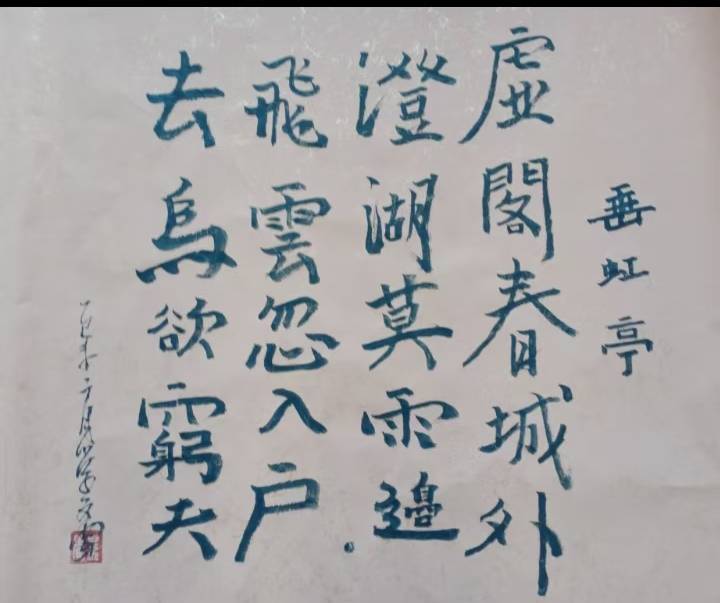 垂虹亭
虛閣春城外
澄湖莫雨邊.
飛雲忽入户
去烏欲窮夫